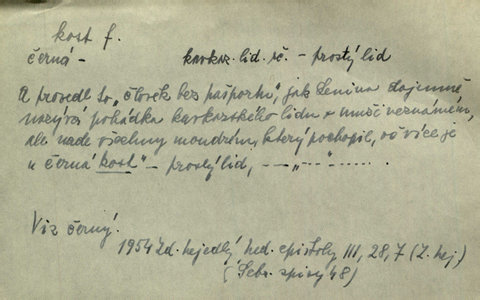 kost f.
černá - kavkaz. lid. rč. - prostý lid
A provedl to „člověk bez pašportu", jak Lenina dojemně
nazývá pohádka kavkazského lidu o muži neznámém,
ale nade všechny moudrém, který pochopil, oč více je
u černá kost" - prostý lid, - - „ - - " - .....
Viz černý.
1954 Zd. Nejedlý Ned. epištoly III, 28, 7 (Z. Nej)
(Sebr. spisy 48)